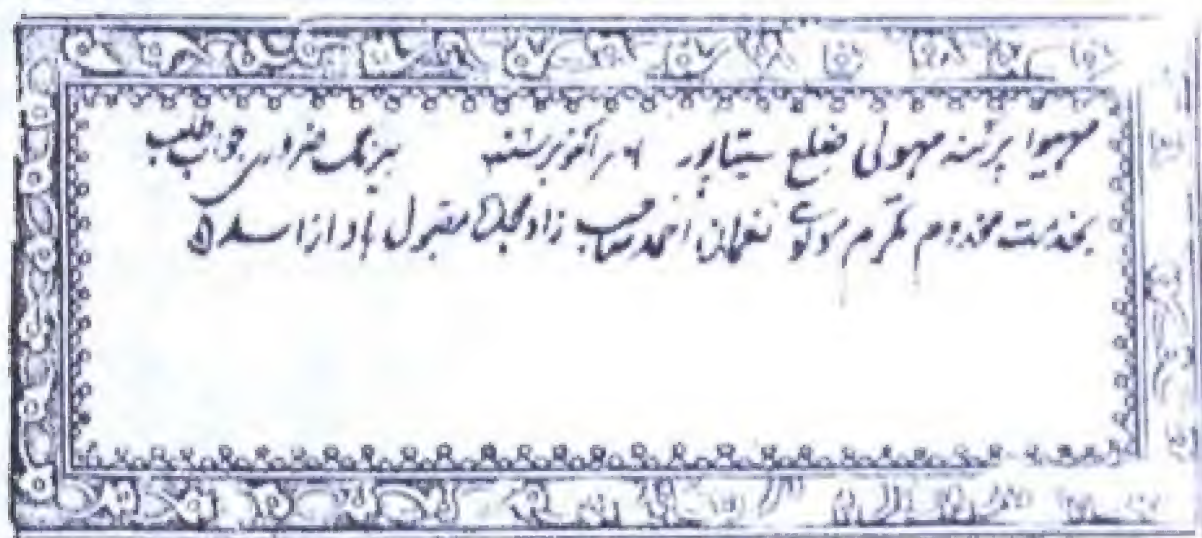 مہیوا پرگنہ مہولی ضلع سیتاپور ۶ ر اکتوبر بیرنگ ضروری جواب طلب
بخدمت مخدوم مکرم مولوی نعمان احمد صاحب زاد مجدہ مقبول باد از اسد